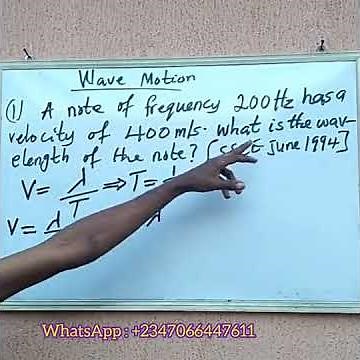 Wave Motion
① A note of frequency 200Hz has a
velocity of 400m/s. What is the wav-
elength of the note? [SSCE June 1994]
V = λ/T ⇒ T =
V = λ
λ
WhatsApp : +2347066447611